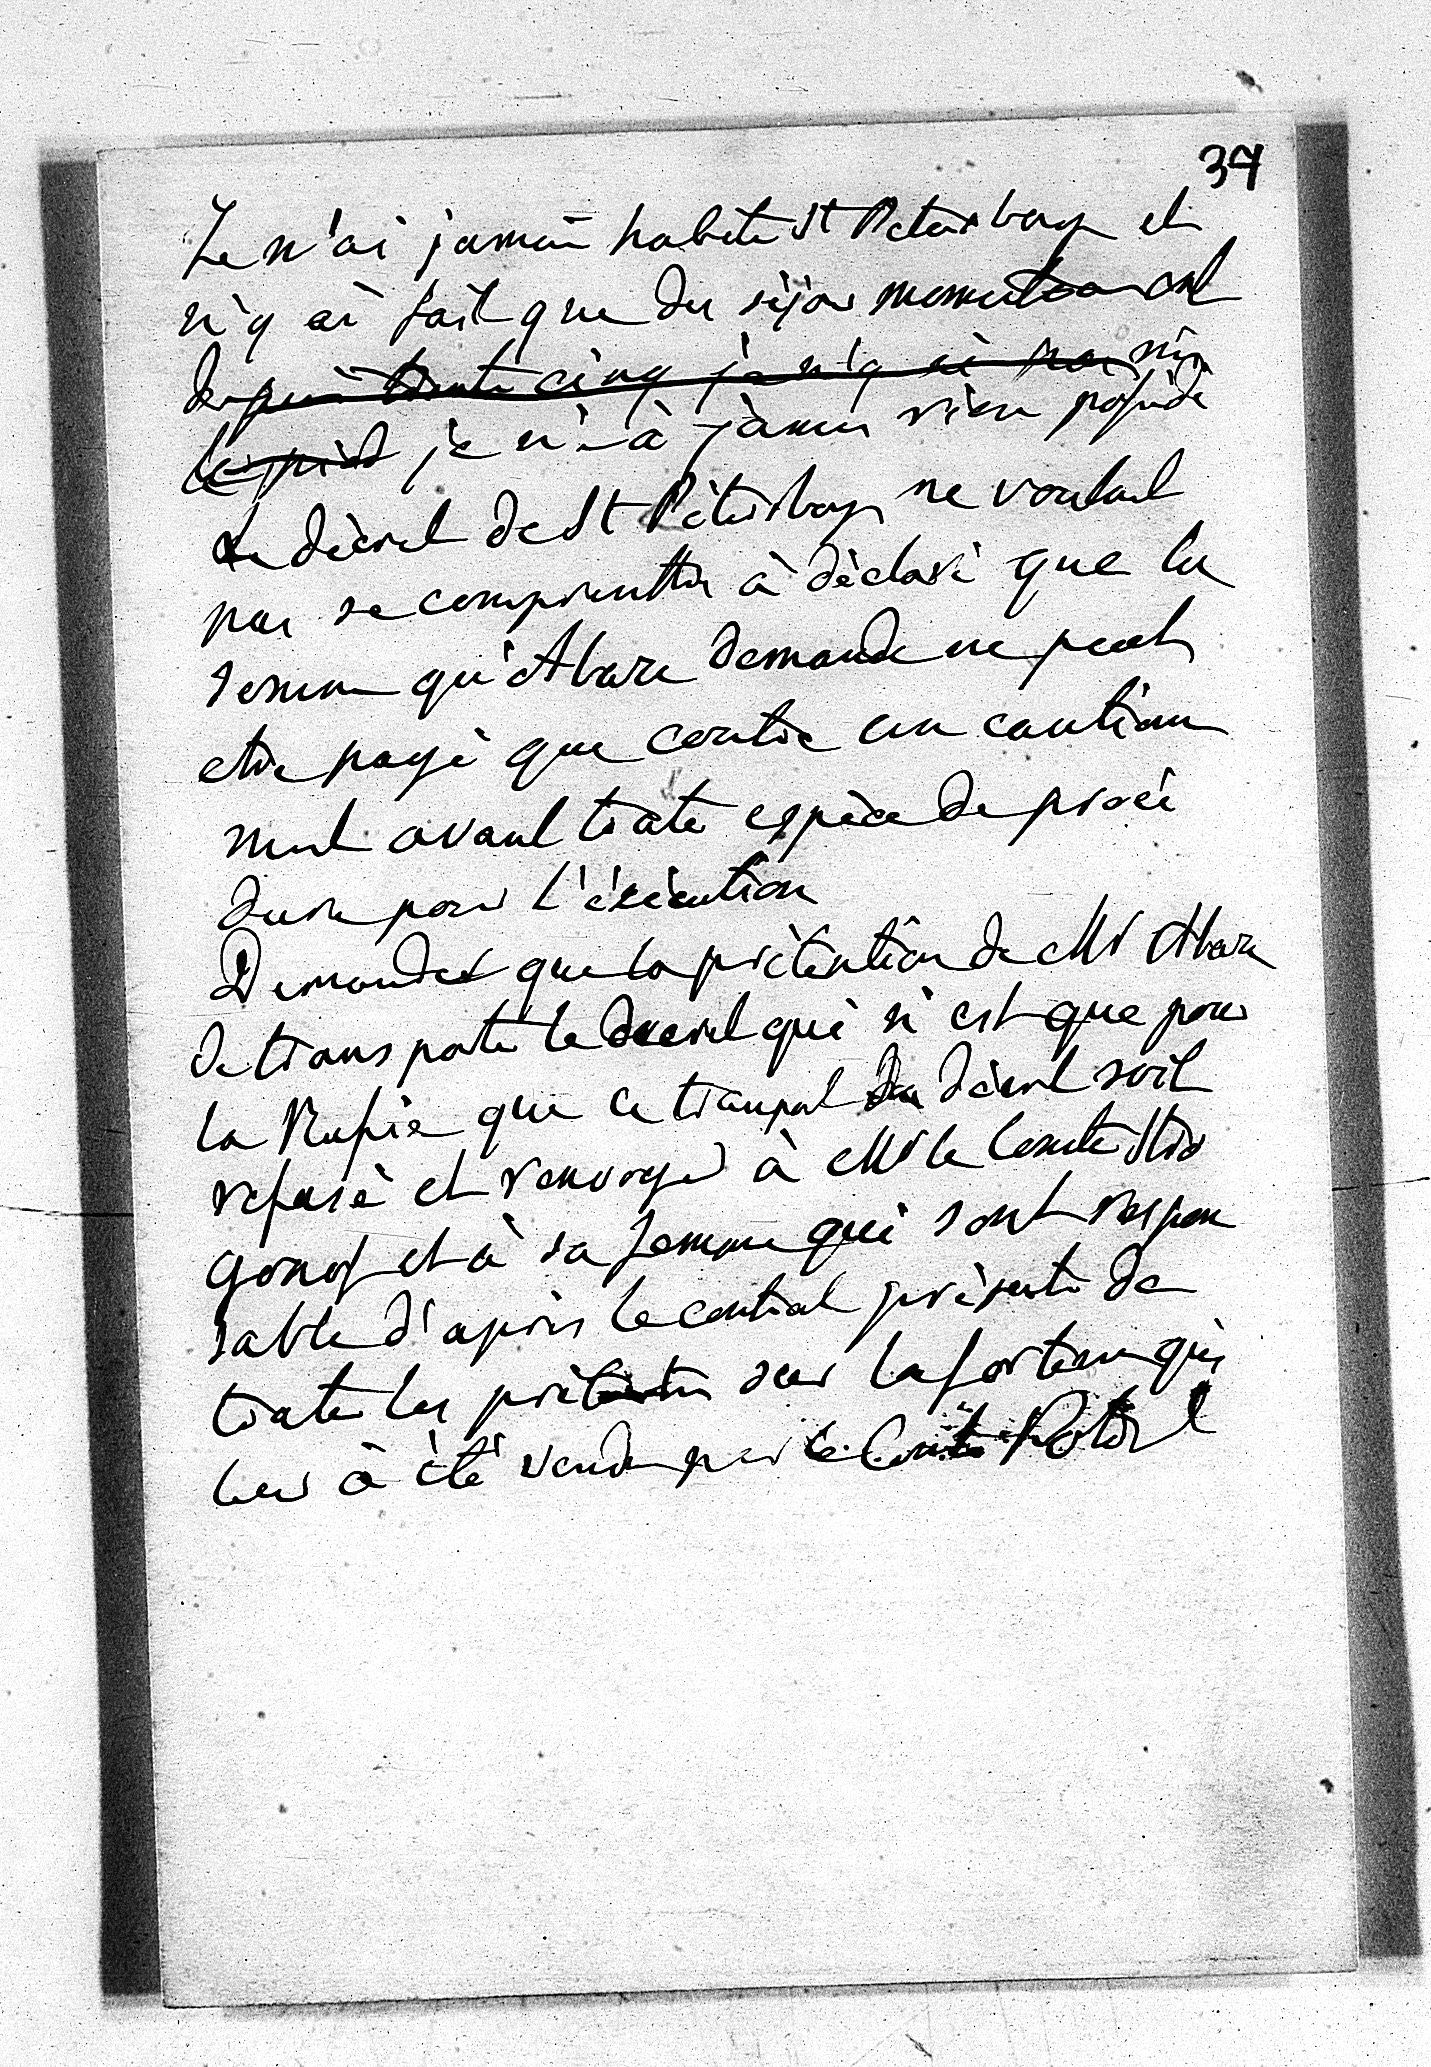 37
Je n'ai jamais habité St Petersbourg et
n'y ai fait que des séjour momentan et
depuis trente cinq je n'y ai pas mis
le pied je n'y à jamais rien possédé
Le décret de St Pétersbourg ne voulant
pas se compromettre à déclaré que la
somme qu'Abaza demande ne peut
etre payé que contre un caution
nment avant toute espèce de procé
dure pour l'éxécution
Demander que la prétention de Mr Abaza
de transporter le decret qui n'est que pour
la Russie que ce transport du décret soit
refusé et renvoyer à Mr le Comte Stro
gonof et à sa femme qui sont respon
sable d'après le contrat présenté de
toute les préten sur la fortune qui
leur à été vendu par le Comte Potocl